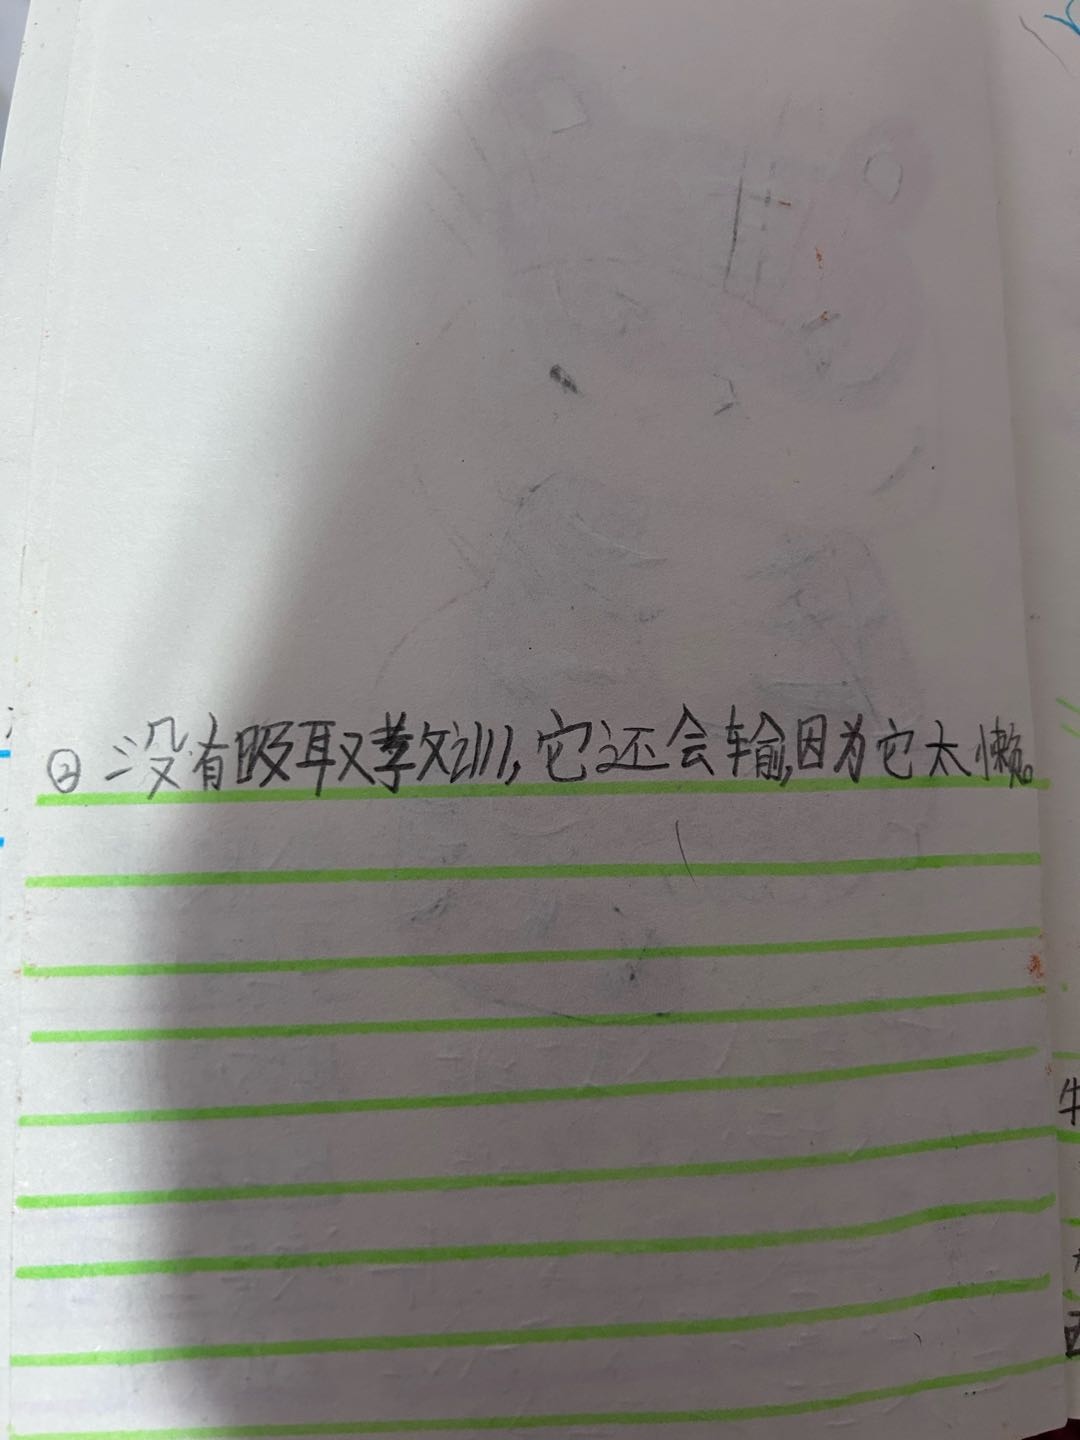 ② 没有吸取教训,它还会输,因为它太懒。
牛